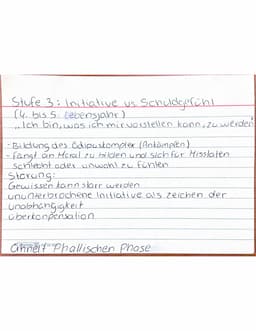 Stufe 3: Initiative vs Schuldgefühl
(4. bis 5. Lebensjahr)
"Ich bin, was ich mir vorstellen kann, zu werden"
- Bildung des Ödipuskomplex (Ankämpfen)
- fängt an Moral zu bilden und sich für Misstaten
schlecht oder unwohl zu fühlen
Störung:
Gewissen kann starr werden
ununterbrochene Initiative als Zeichen der
Unabhängigkeit
Überkompensation
Ähnelt Phallischen Phase